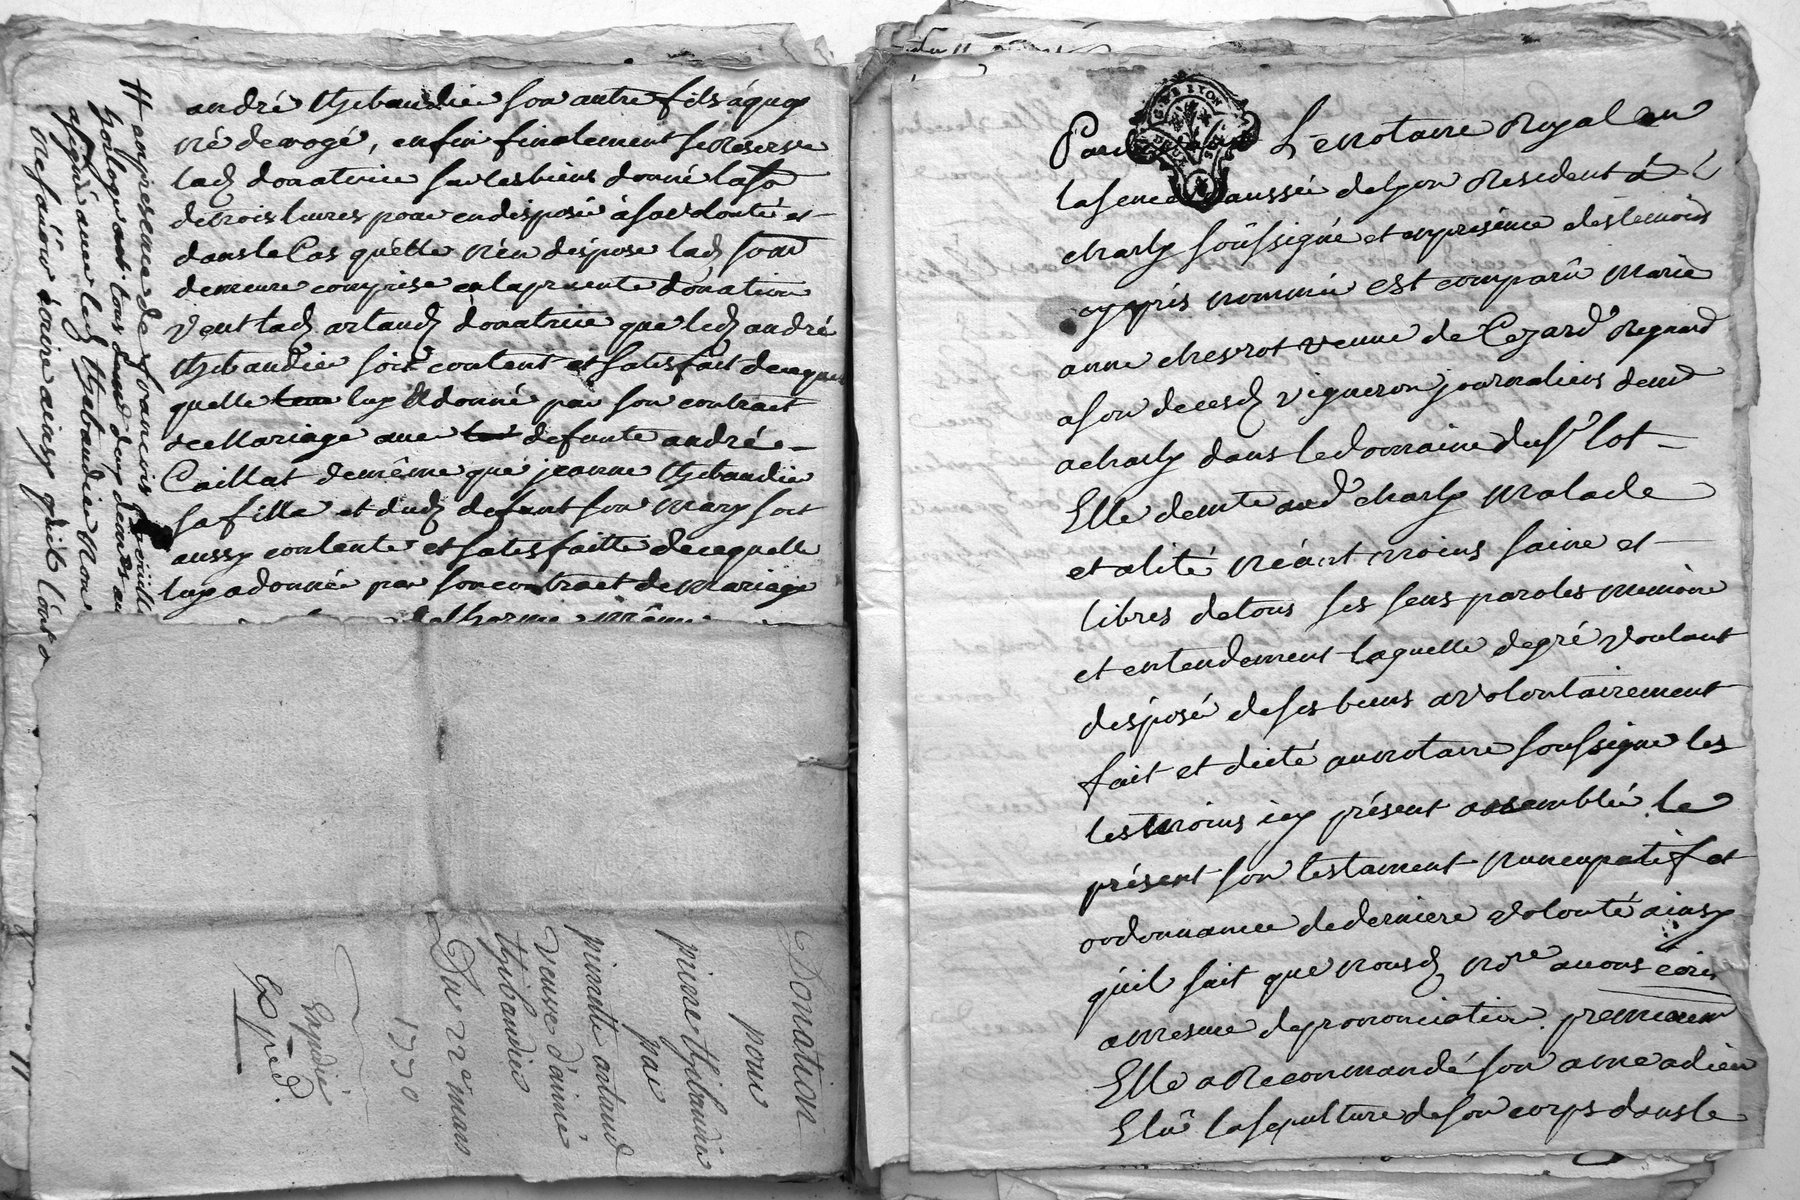 andré thibaudier son autre fils áquoy
né derogé, enfin finalement se Réserve
lad donatrice sur les biens donné la so
de trois livres pour en disposé à sa volonté et
dans le Cas qu'elle n'en dispose lad som
demeure comprise en la presente donation
veut lad artaud donatrice que led andré
thibaudier soit content et satisfait de ce
quelle luy a donné par son contract
de Mariage avec defunte andrée
Caillat de même que jeanne thibaudier
sa fille et dud defunt son mary soit
aussy contente et satisfaitte de ce quelle
luy a donnée par son contract de Mariage
# en présence de francois
horloger tous deux dem au
signé avec led thibaudier Non
ne savoir écrire ainsy qu'il l'ont d
Donation
pour
pierre thibaudier
par
pierrette artaud
veuve d'aimé
thibaudier
Du 22e mars
1770
Expédié
Expéd.
Par Le notaire Royal en
la sene aussée de Lyon Resident á
charly soûssigné et en présence des temoins
cy après nommé est comparû Marie
anne chevrot veuve de Cezard Regnard
a son deced vigneron journaliers demt
a charly dans le domaine du sr lot
Elle demte aud charly Malade
et alité néant moins saine et
libres de tous ses sens paroles memoire
et entendement laquelle de gré voulant
disposé de ses biens a volontairement
fait et dicté au notaire soussigné les
tesmoins icy présent assemblé le
présent son testament nuncupatif et
ordonnance de derniere volonté ainsy
qu'il suit que nousd Nore avons écris
a mesure de prononciation. premierem
Elle a Recommandé son ame a dieu
Elû la sepulture de son corps dans le